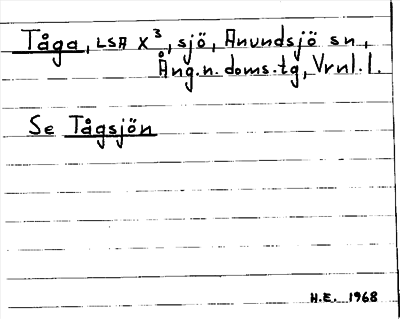 Tåga, LSA X³, sjö, Anundsjö sn,
Ång.n.doms.tg, Vrnl.l.
Se Tågsjön
H.E. 1968